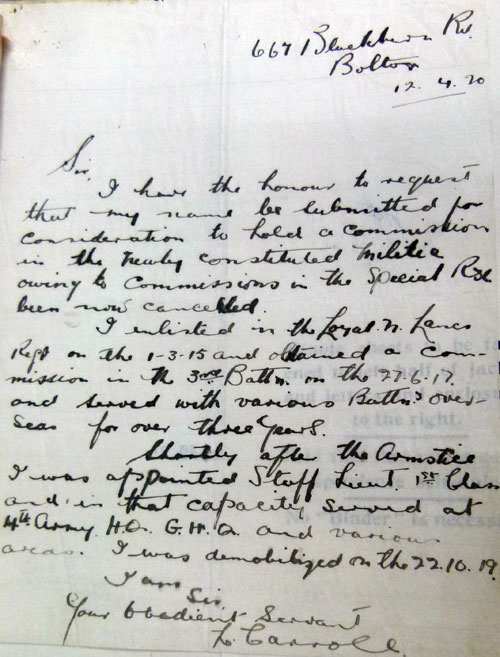 667 Blackburn Rd.
Bolton
12. 4. 20
Sir,
I have the honour to request
that my name be submitted for
consideration to hold a commission
in the newly constituted Militia
owing to Commissions in the Special Res.
been now cancelled.
I enlisted in the Loyal N. Lancs
Regt on the 1-3-15 and obtained a com-
mission in the 3rd Battn. on the 27.6.17.
and served with various Battns over-
seas for over three years.
Shortly after the Armstice
I was appointed Staff Lieut. 1st Class
and in that capacity served at
4th Army. H.Q. G.H.Q. and various
areas. I was demobilized on the 22.10.19.
I am Sir.
Your Obedient Servant
Carroll.
to the right.